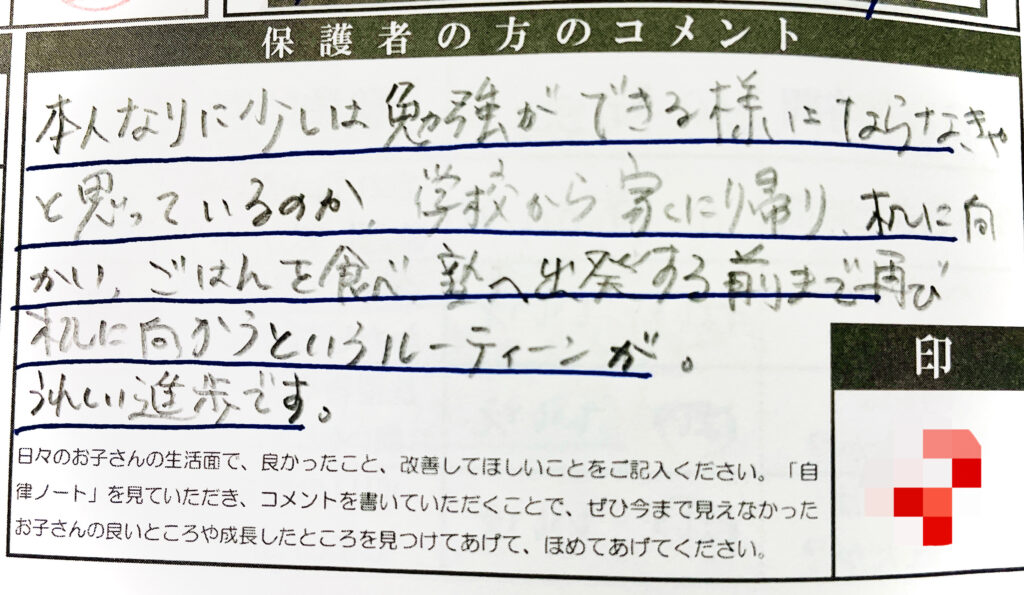 保護者の方のコメント
本人なりに少しは勉強ができる様にならなきゃ
と思っているのか、学校から家に帰り、机に向
かい、ごはんを食べ、塾へ出発する前まで再び
机に向かうというルーティーンが。
うれしい進歩です。
印
日々のお子さんの生活面で、良かったこと、改善してほしいことをご記入ください。「自
律ノート」を見ていただき、コメントを書いていただくことで、ぜひ今まで見えなかった
お子さんの良いところや成長したところを見つけてあげて、ほめてあげてください。